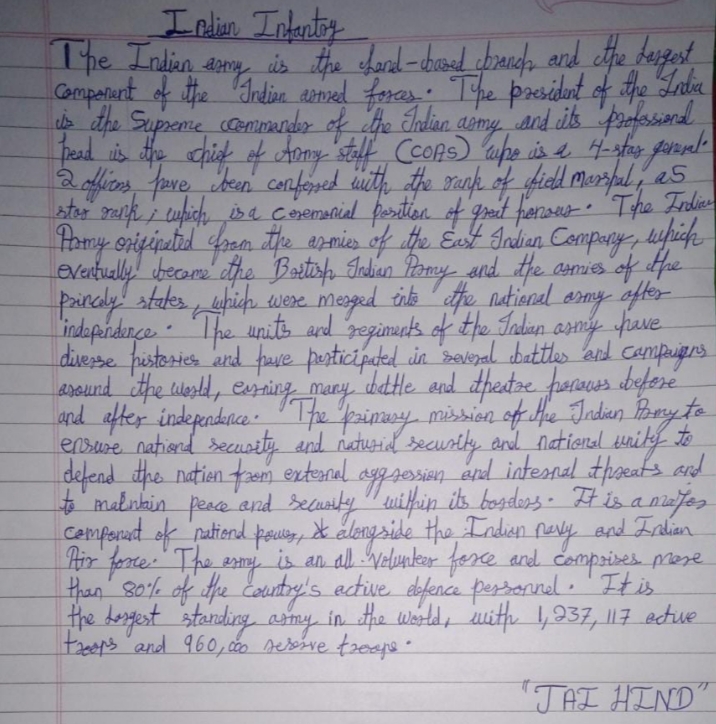 Indian Infantry
The Indian army is the land-based branch and the largest
component of the Indian armed forces. The president of the India
is the Supreme commander of the Indian army and its professional
head is the chief of Army staff (COAS) who is a 4-star general.
2 officers have been conferred with the rank of field marshal, a 5
star rank, which is a ceremonial position of great honour. The Indian
Army originated from the armies of the East Indian Company, which
eventually became the British Indian Army and the armies of the
princely states, which were merged into the national army after
independence. The units and regiments of the Indian army have
diverse histories and have participated in several battles and campaigns
around the world, earning many battle and theatre honours before
and after independence. The primary mission of the Indian Army to
ensure national security and security and national unity to
defend the nation from external aggression and internal threats and
to maintain peace and security within its borders. It is a major
component of national power, alongside the Indian navy and Indian
Air force. The army is an all-volunteer force and comprises more
than 80% of the country's active defence personnel. It is
the largest standing army in the world, with 1,237,117 active
troops and 960,000 reserve troops.
"JAI HIND"